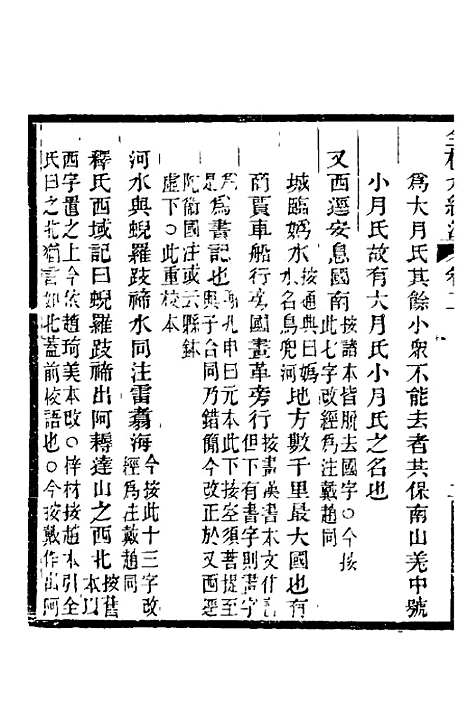 爲大月氏其餘小衆不能去者共保南山羌中號
小月氏故有大月氏小月氏之名也
又西逕安息國南按諸本皆脫去國字○今按
此七字改經爲注戴趙同
城臨嬀水按通典曰嬀
水名烏兜河地方數千里最大國也有
商賈車船行旁國畫革旁行按畫漢書本文作書
但下有書字則畫字
爲書記也孔申曰元本此下接空須菩提至
與子合同乃錯簡今改正於又西逕
陀衞國注或云縣缽
虛下○此重校本
河水與蜺羅跂禘水同注雷翥海今按此十三字改
經爲注戴趙同
釋氏西域記曰蜺羅跂禘出阿耨達山之西北按舊
本以
西字置之上今依趙琦美本改○梓材按趙本引全
氏曰之北猶言如北蓋前校語也○今按戴作出阿